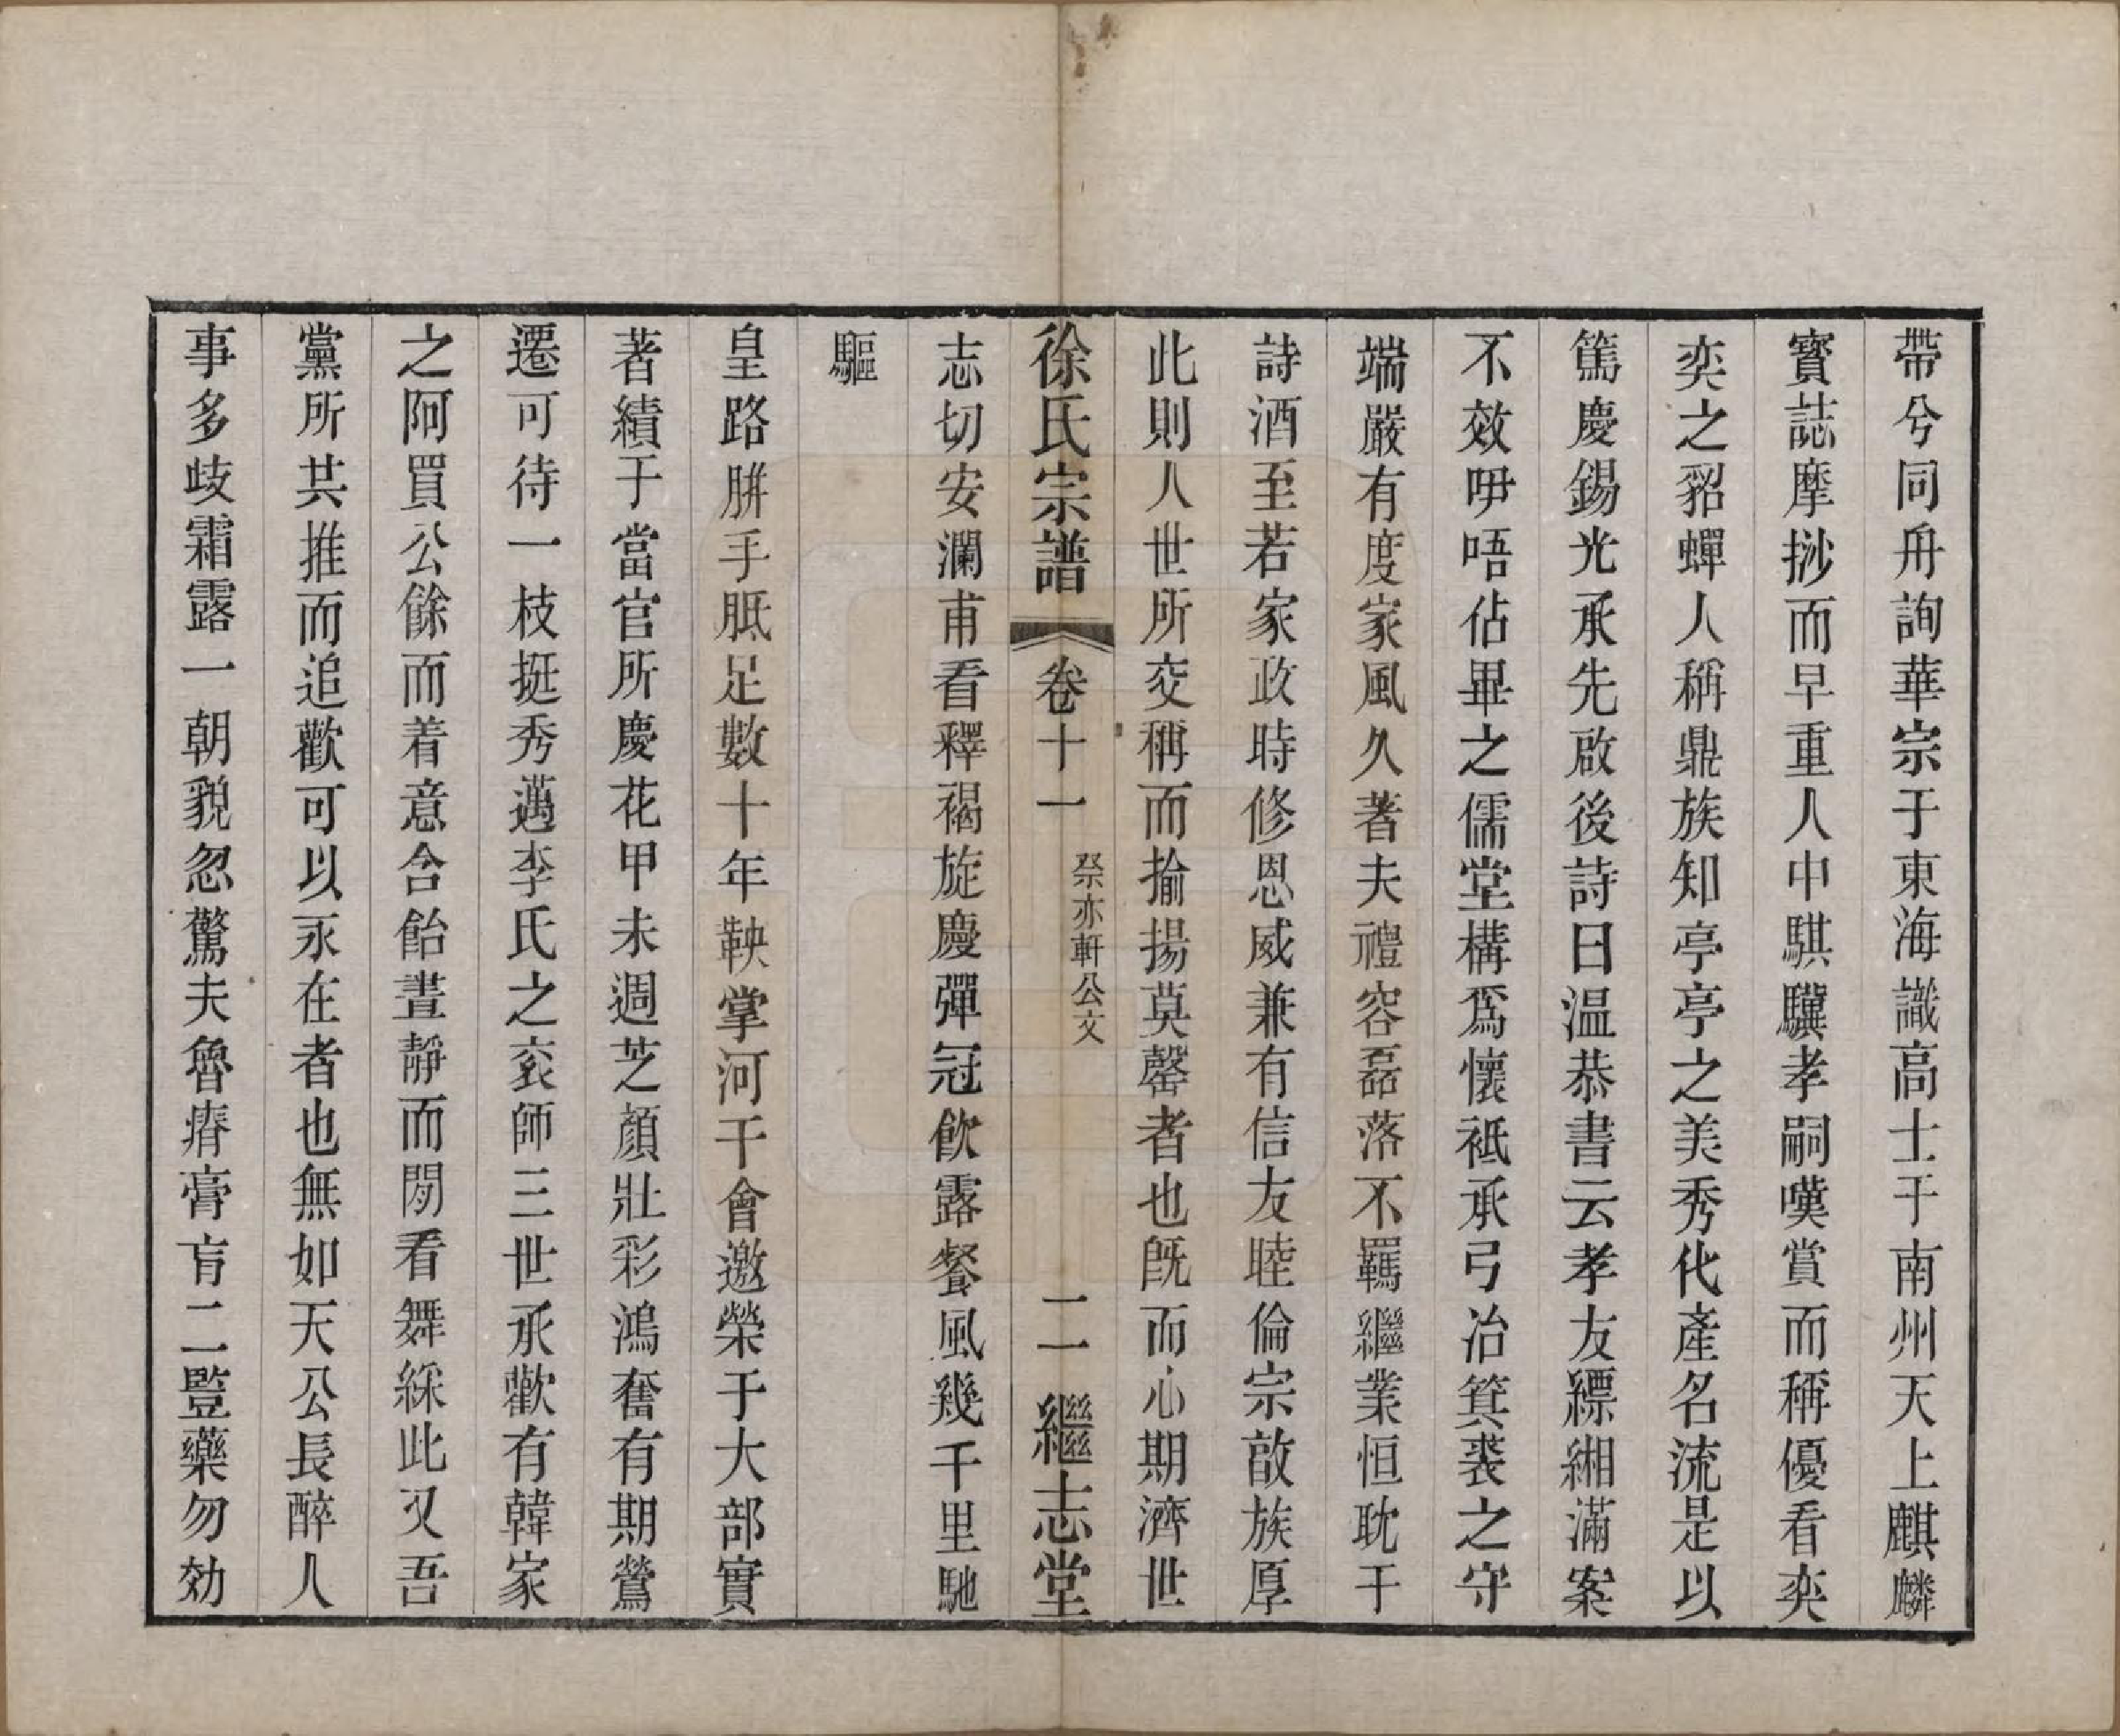 帶兮同舟詢華宗于東海識高士于南州天上麒麟
寶誌摩挱而早重人中騏驥孝嗣嘆賞而稱優看奕
奕之貂蟬人稱鼎族知亭亭之美秀化產名流是以
篤慶錫光承先啟後詩曰温恭書云孝友縹緗滿案
不效吚唔佔畢之儒堂構爲懷祗承弓冶箕裘之守
端嚴有度家風久著夫禮容磊落不羈繼業恒耽于
詩酒至若家政時修恩威兼有信友睦倫宗敆族厚
此則人世所交稱而揄揚莫罄者也旣而心期濟世
徐氏宗譜 卷十一 祭亦軒公文 二 繼志堂
志切安瀾甫看釋褐旋慶彈冠飲露餐風幾千里馳
驅
皇路胼手胝足數十年鞅掌河干會邀榮于大部實
著績于當官所慶花甲未週芝顏壯彩鴻奮有期鶯
遷可待一枝挺秀邁李氏之衮師三世承歡有韓家
之阿買公餘而着意含飴晝靜而閒看舞綵此又吾
黨所共推而追歡可以永在者也無如天公長醉人
事多歧霜露一朝貌忽驚夫魯瘠膏肓二豎藥勿効